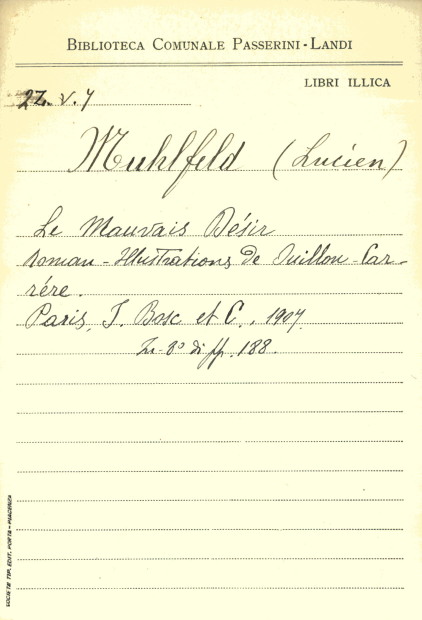 BIBLIOTECA COMUNALE PASSERINI-LANDI
LIBRI ILLICA
2Z. V. 7
Muhlfeld (Lucien)
Le Mauvais Désir
Roman - Illustrations de Ouillon-Car-
rére.
Paris, J. Bosc et C., 1907.
In-8º di pp. 188.
SOCIETÀ TIP. EDIT. PORTA - PIACENZA